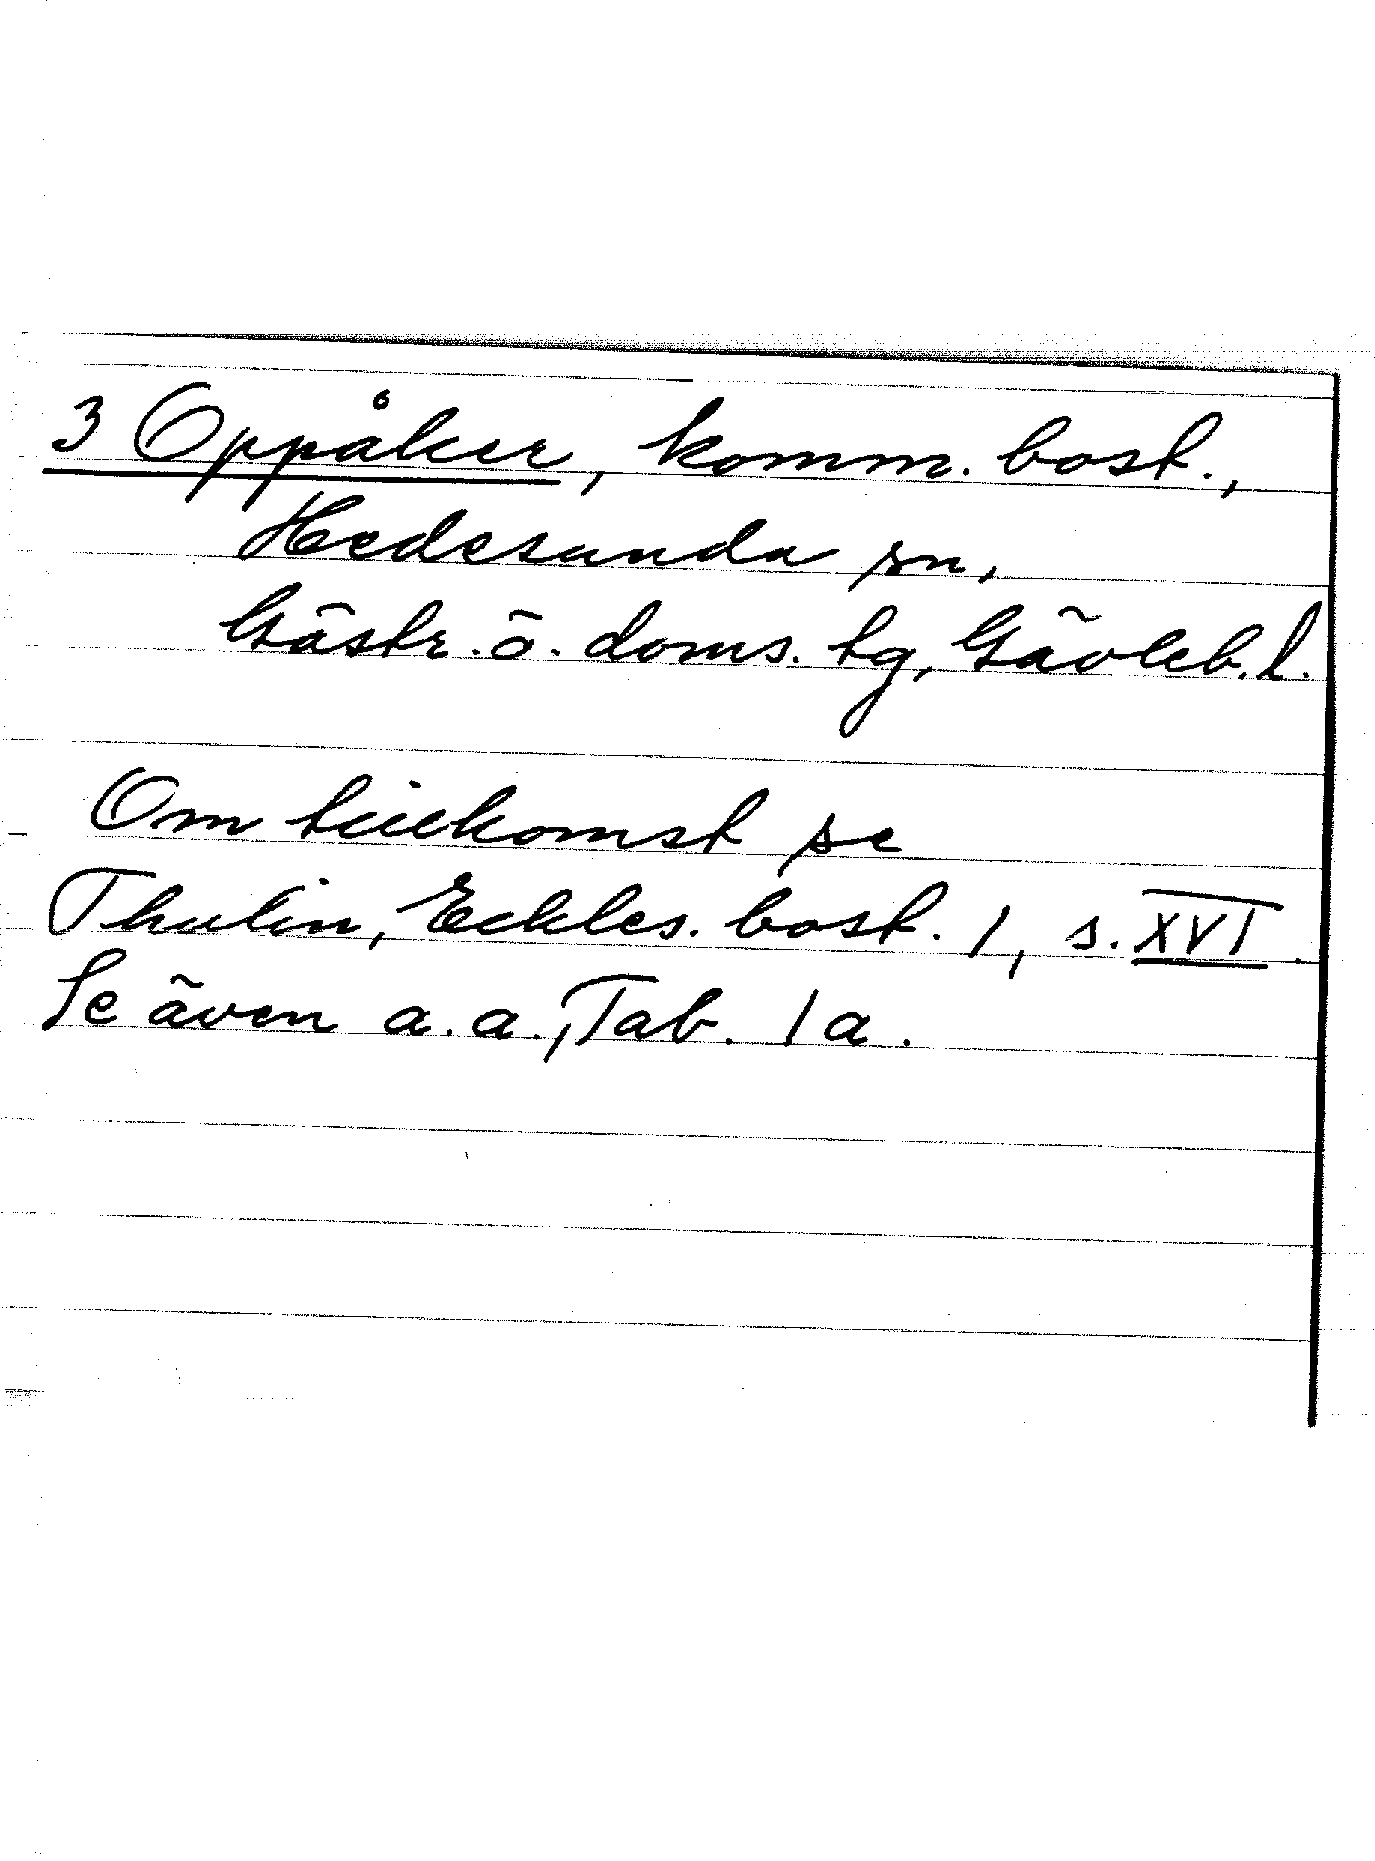 3 Oppåker, komm. bost.,
Hedesunda sn,
Gästr. ö. doms. tg, Gävleb. l.
Om tillkomst se
Thulin, Eckles. bost. 1, s. XVI.
Se även a. a., Tab. 1a.